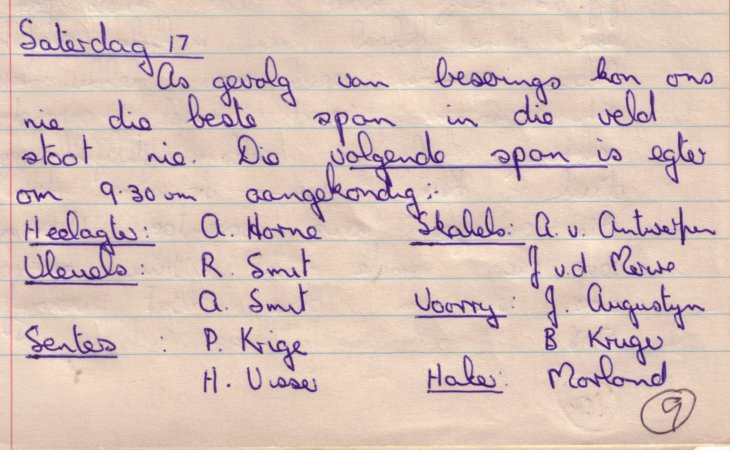 Saterdag 17
As gevolg van beserings kon ons
nie die beste span in die veld
stoot nie. Die volgende span is egter
om 9.30 vm aangekondig:
Heelagter: A. Horne Skakels: A. v. Antwerpen
Vleuels: R. Smit J v.d Merwe
A. Smit Voorry: J. Augustyn
Senters : P. Krige B Kruger
H. Visser Haker: Morland
9